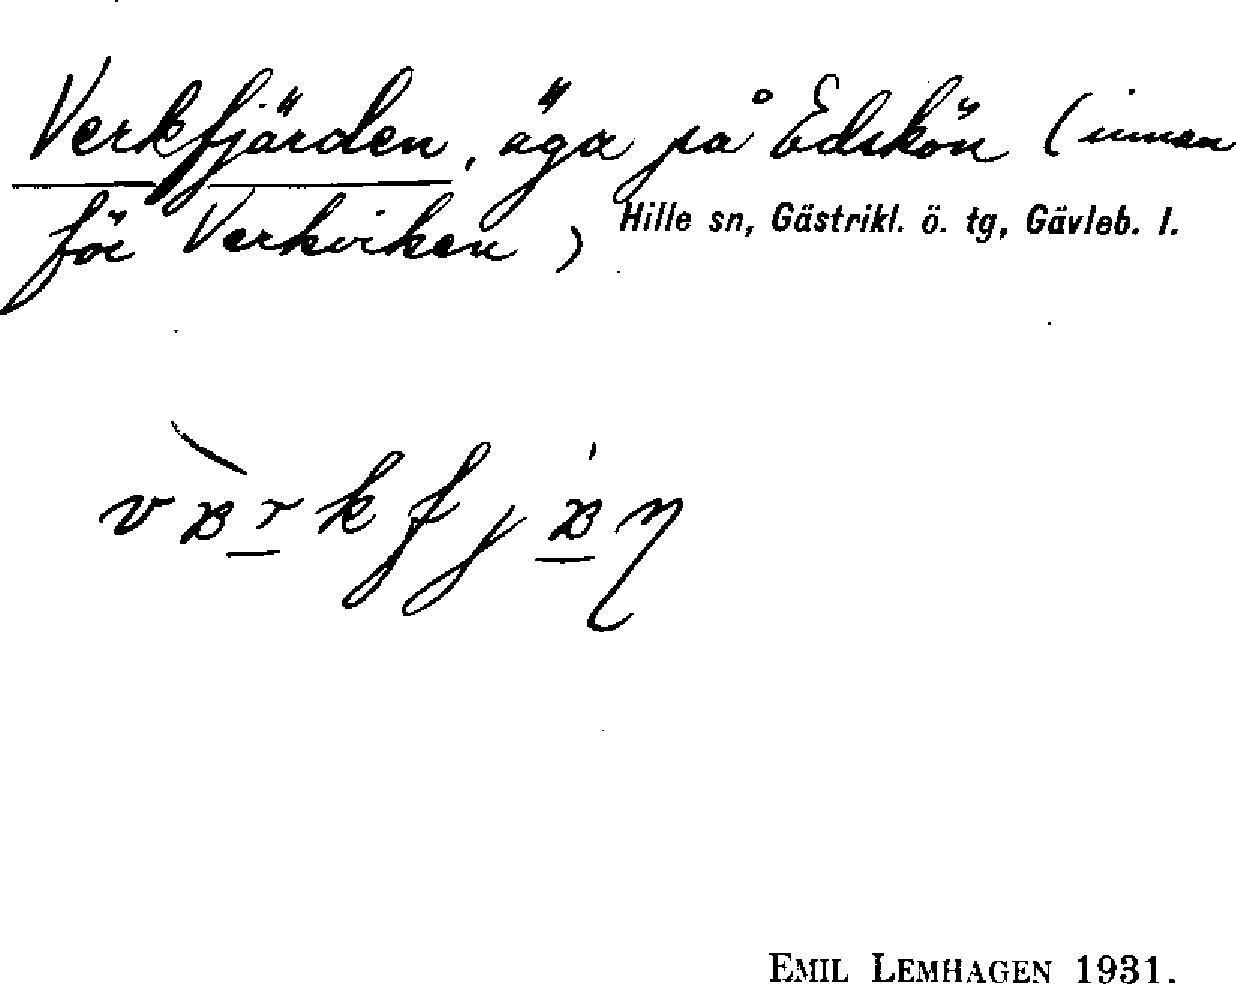 Verkfjärden, äga på Edskön (innan
för Verkviken)
Hille sn, Gästrikl. ö. tg, Gävleb. l.
EMIL LEMHAGEN 1931.